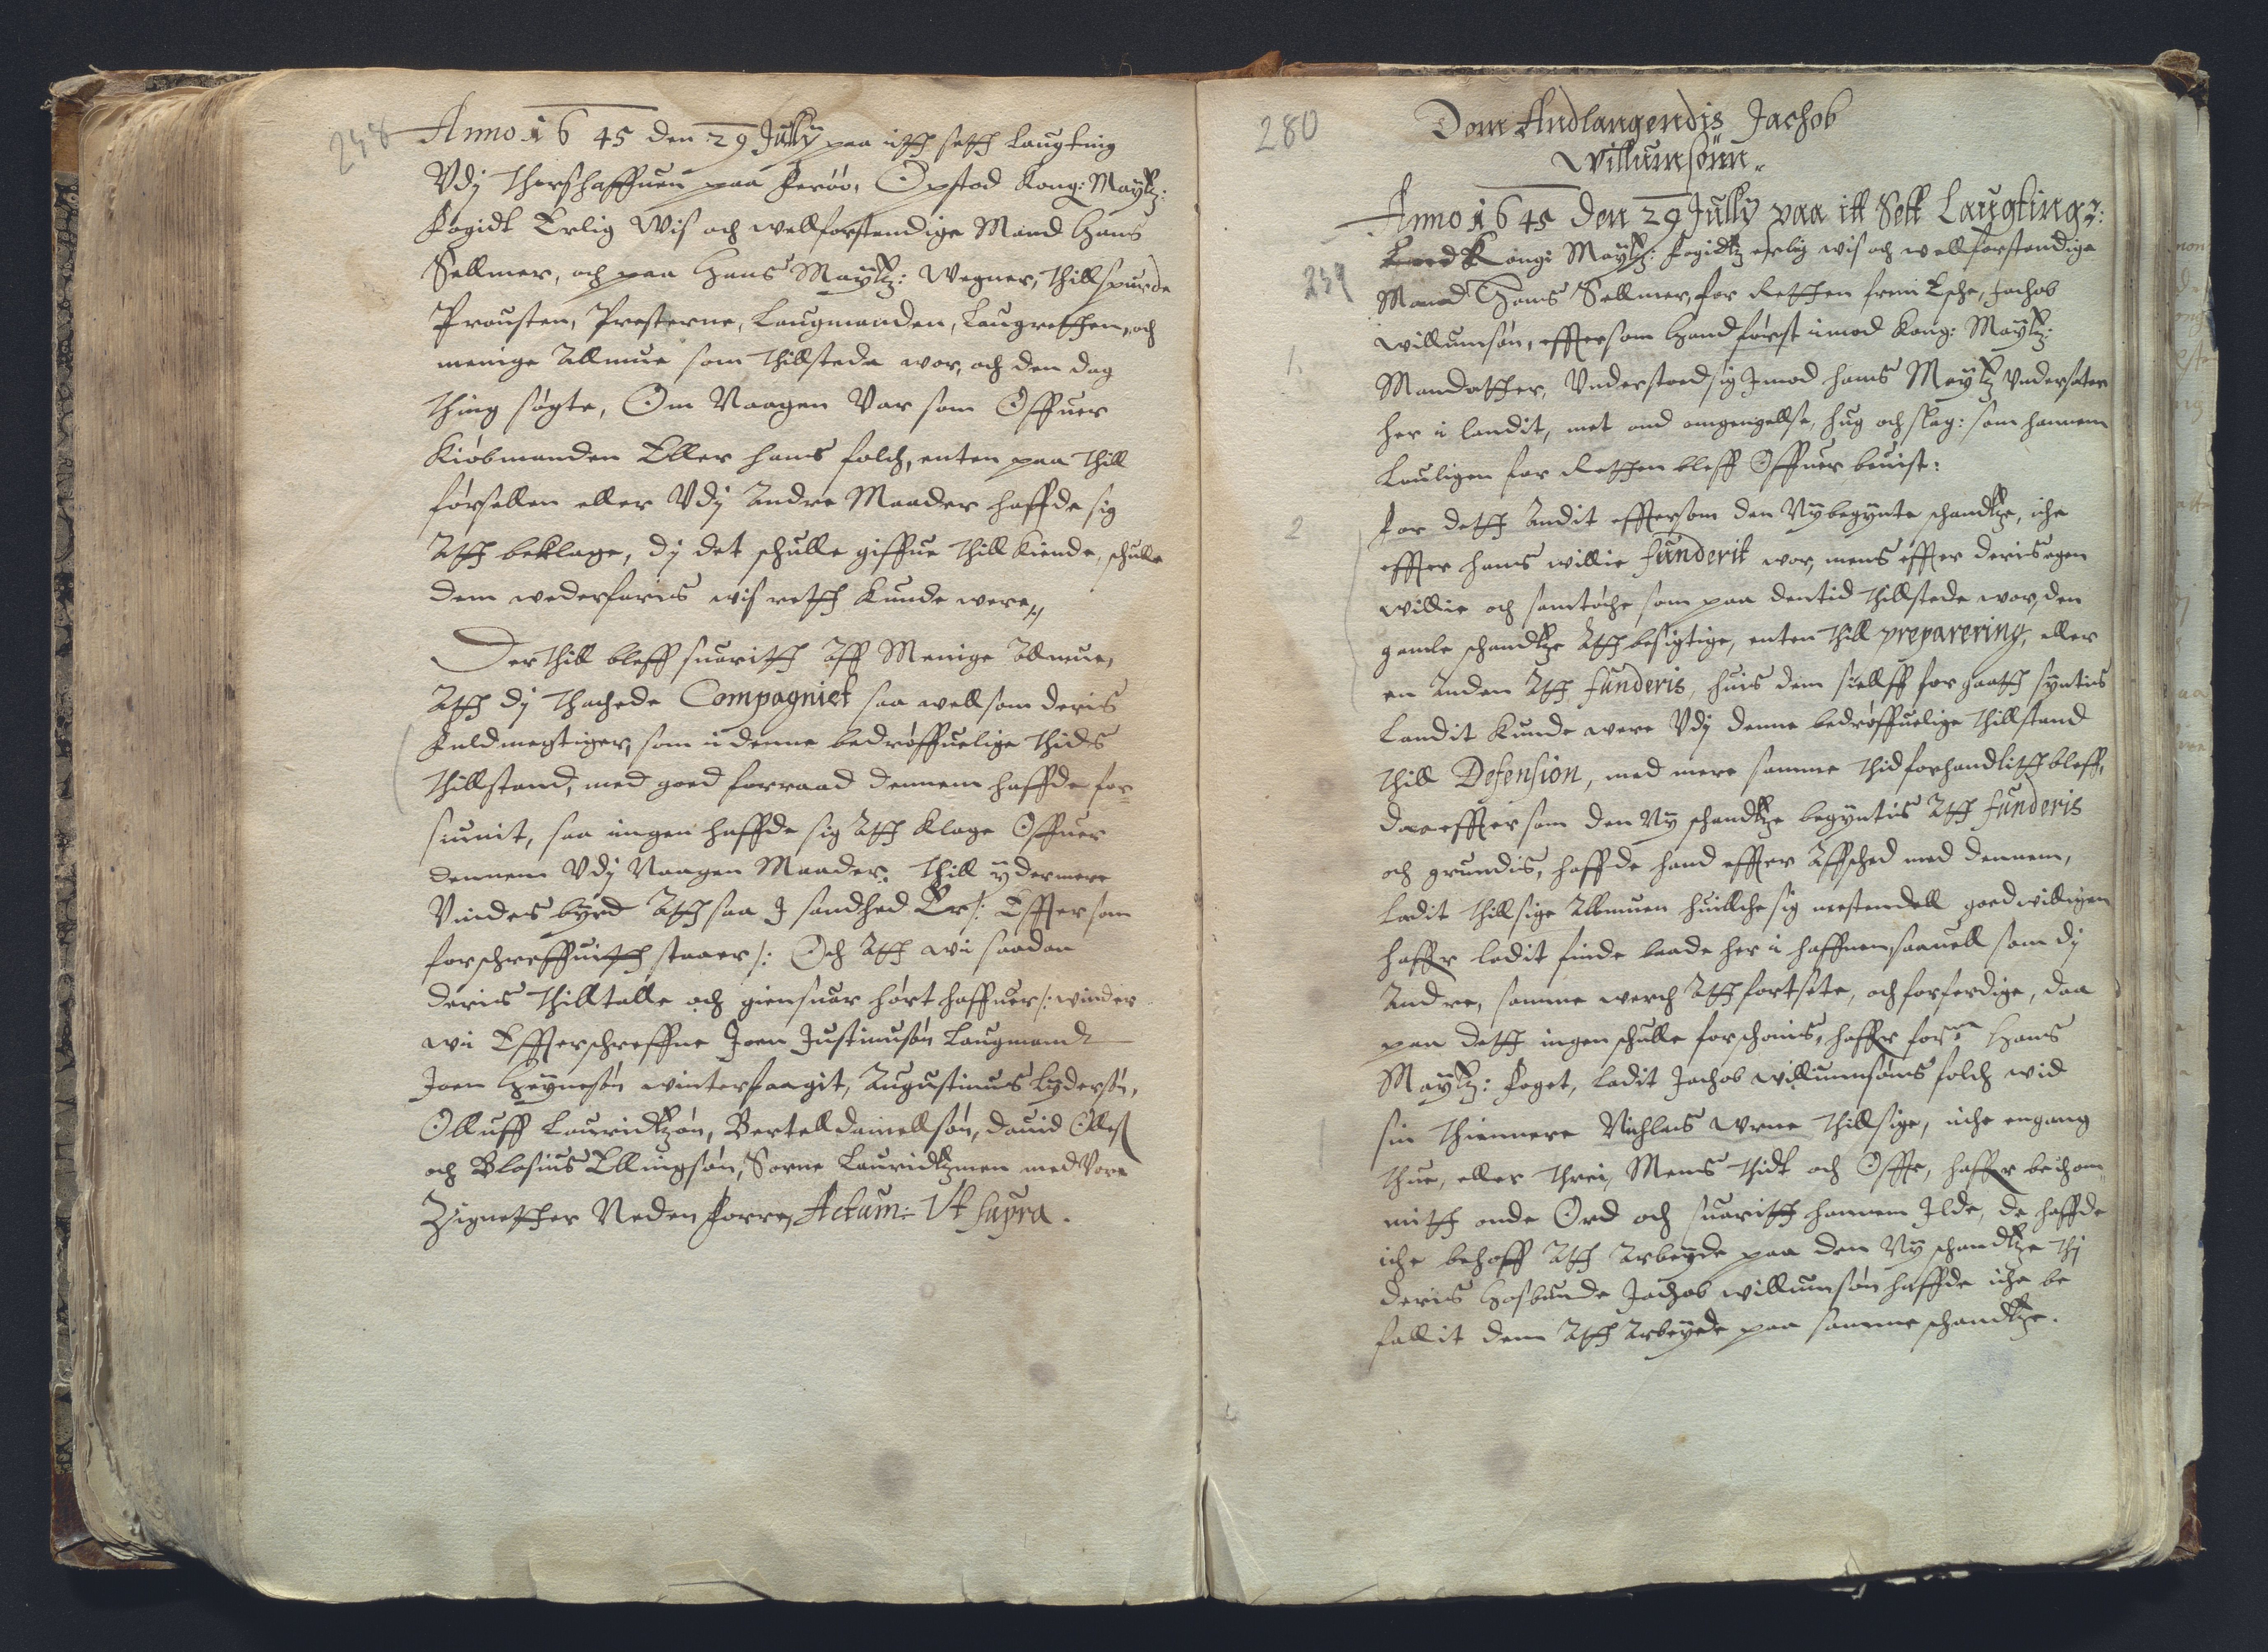 258
Anno 1645 den 29 Jully paa itth seth Laugting
Vdj Thorshaffuen paa Ferøø, Opstod Kong: Maytz:
Fogidt Erlig Wis och wellforstendige Mand Hans
Sellmer, och paa Hans Maytz: Wegner, Thillspurde
Prousten, Presterne, Laugmanden, Laugretthen, och
menige Allmue som thillstede wor, och den dag
Thing søgte, Om Naagen Var som Offuer
Kiøbmanden Eller hans folch, enten paa Thill
førsellen eller Vdj Andre Maader haffde sig
Atth beklage, dj det schulle giffue Thill Kiende, schulle
dem wederfaris wis retth Kunde were,,
Der Thill bleff suaritth Aff Menige Allmue,
Atth dj Thachede Compagniet saa well som deris
Fuldmegtiger, som i denne bedrøffuelige Thids
Thillstand, med goed forraad dennem haffde for-
siunit, saa ingen haffde sig Atth Klage Offuer
dennem Vdj Naagen Maader. Thill ydermere
Vindesbyrd Atth saa J sandhed Er /: Effter som
forschreffuitth staaer /: Och Atth wi saadan
deris Thilltalle och giensuar hørt haffuer /: winder
wi Effterschreffne Joen Justinusøn Laugmand
Joen Heynesøn winterfaagit, Augustinus Lydersøn,
Olluff Lauridtzøn, Bertell Daniellsøn, Dauid Olles
och Blosius Ellingsøn, Sorne Lauridtzmen med Vore
Zignetther Neden Forre, Actum: Vt supra.
280
Dom Andlangendis Jachob
Willumsønn.
Anno 1645 den 29 Jully paa itt Sett Laugting:
259
Kongi Maytz: Fogidtz erlig wis och wellforstendige
Mand Hans Sellmer, for Retthen frem Esche, Jachob
willumsøn, efftersom Hand først imod Kong: Maytz:
1.
Mandatther, Vnderstoed sig Jmod hans Maytz Vndersater
her i landit, met ond omgengellse, hug och slag: som hannem
Louligen for Retthen bleff Offuer beuist:
2
For detth Andit efftersom den Nybegynte schandtze, iche
effter hans willie funderit wor, mens effter deris egen
willie och samtøche som paa den tid thillstede wor, den
gamle schandtze Atth besigtige, enten Thill preparering, eller
en Anden Atth funderis, huis dem siellff for gaatth syntis
Landit Kunde were Vdj denne bedrøffuelige Thillstand
Thill Defension, med mere samme Thid forhandlitth bleff,
Daa efftersom den Ny schandtze begyntis Atth funderis
och grundis, haffde hand effter Affsched med dennem,
Ladit Thillsige Allmuen huillche sig meestendell goedwilligen
haffr ladit finde baade her i haffnen, saauell som dj
Andre, samme werch Atth fortsete, och forferdige, daa
paa detth ingen schulle forschonis, haffr forne Hans
Maytz: Foget, Ladit Jachob willumsøns folch wid
sin Thiennere Nichlas Vrne Thillsige, iche engang
Thue, eller Threi, Mens Thidt och Offte, haffr bechom-
mitth onde Ord och suaritth hannem Ilde, de haffde
iche behoff Atth Arbeyde paa den Ny schandtze Thj
deris Hosbunde Jachob willumsøn haffde iche be
fallit dem Atth Arbeyde paa samme schandtze.